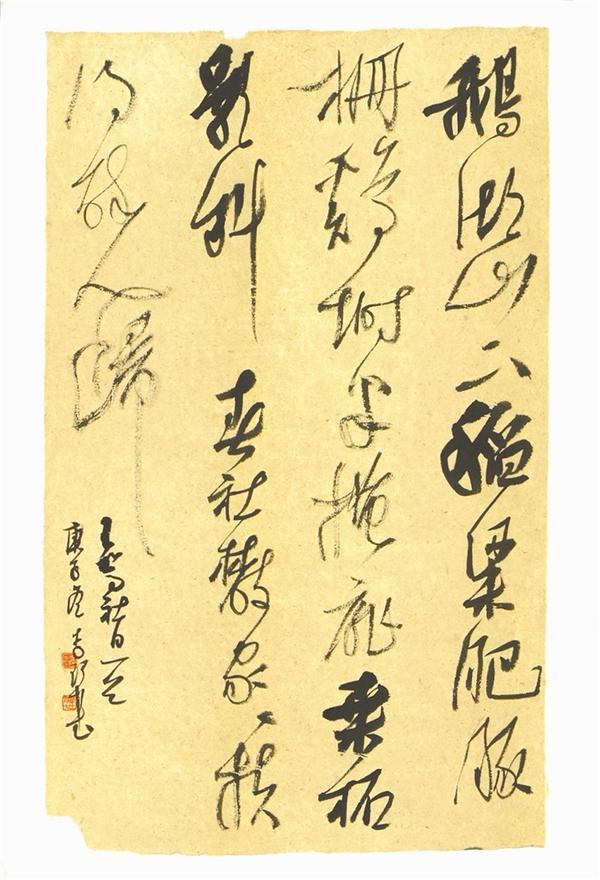 鵝湖山下稻粱肥豚
栅鷄塒半掩扉桑柘
影斜春社散家々扶
得醉人歸
王駕社日一首
庚子